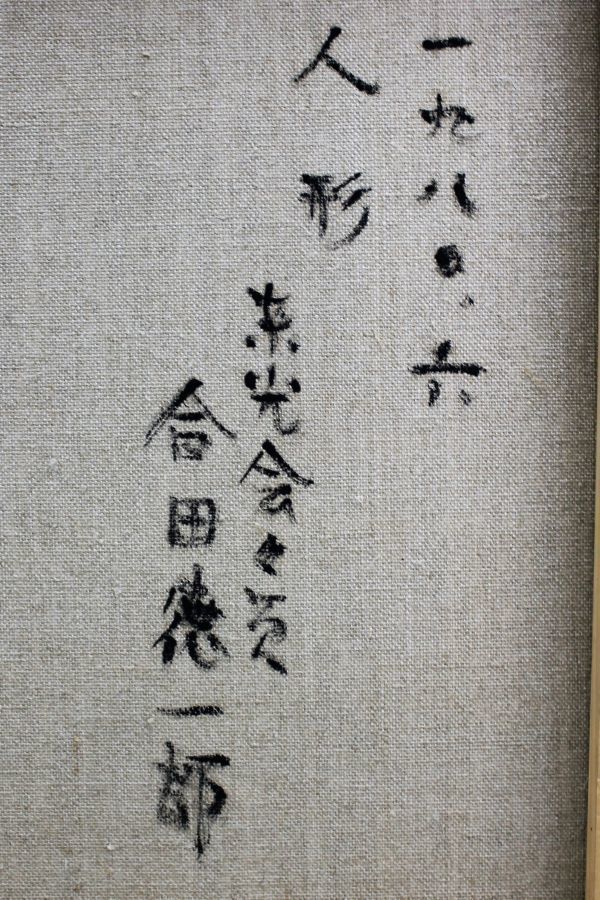 一九八〇、六
人形
東光会々員
合田徳一郎